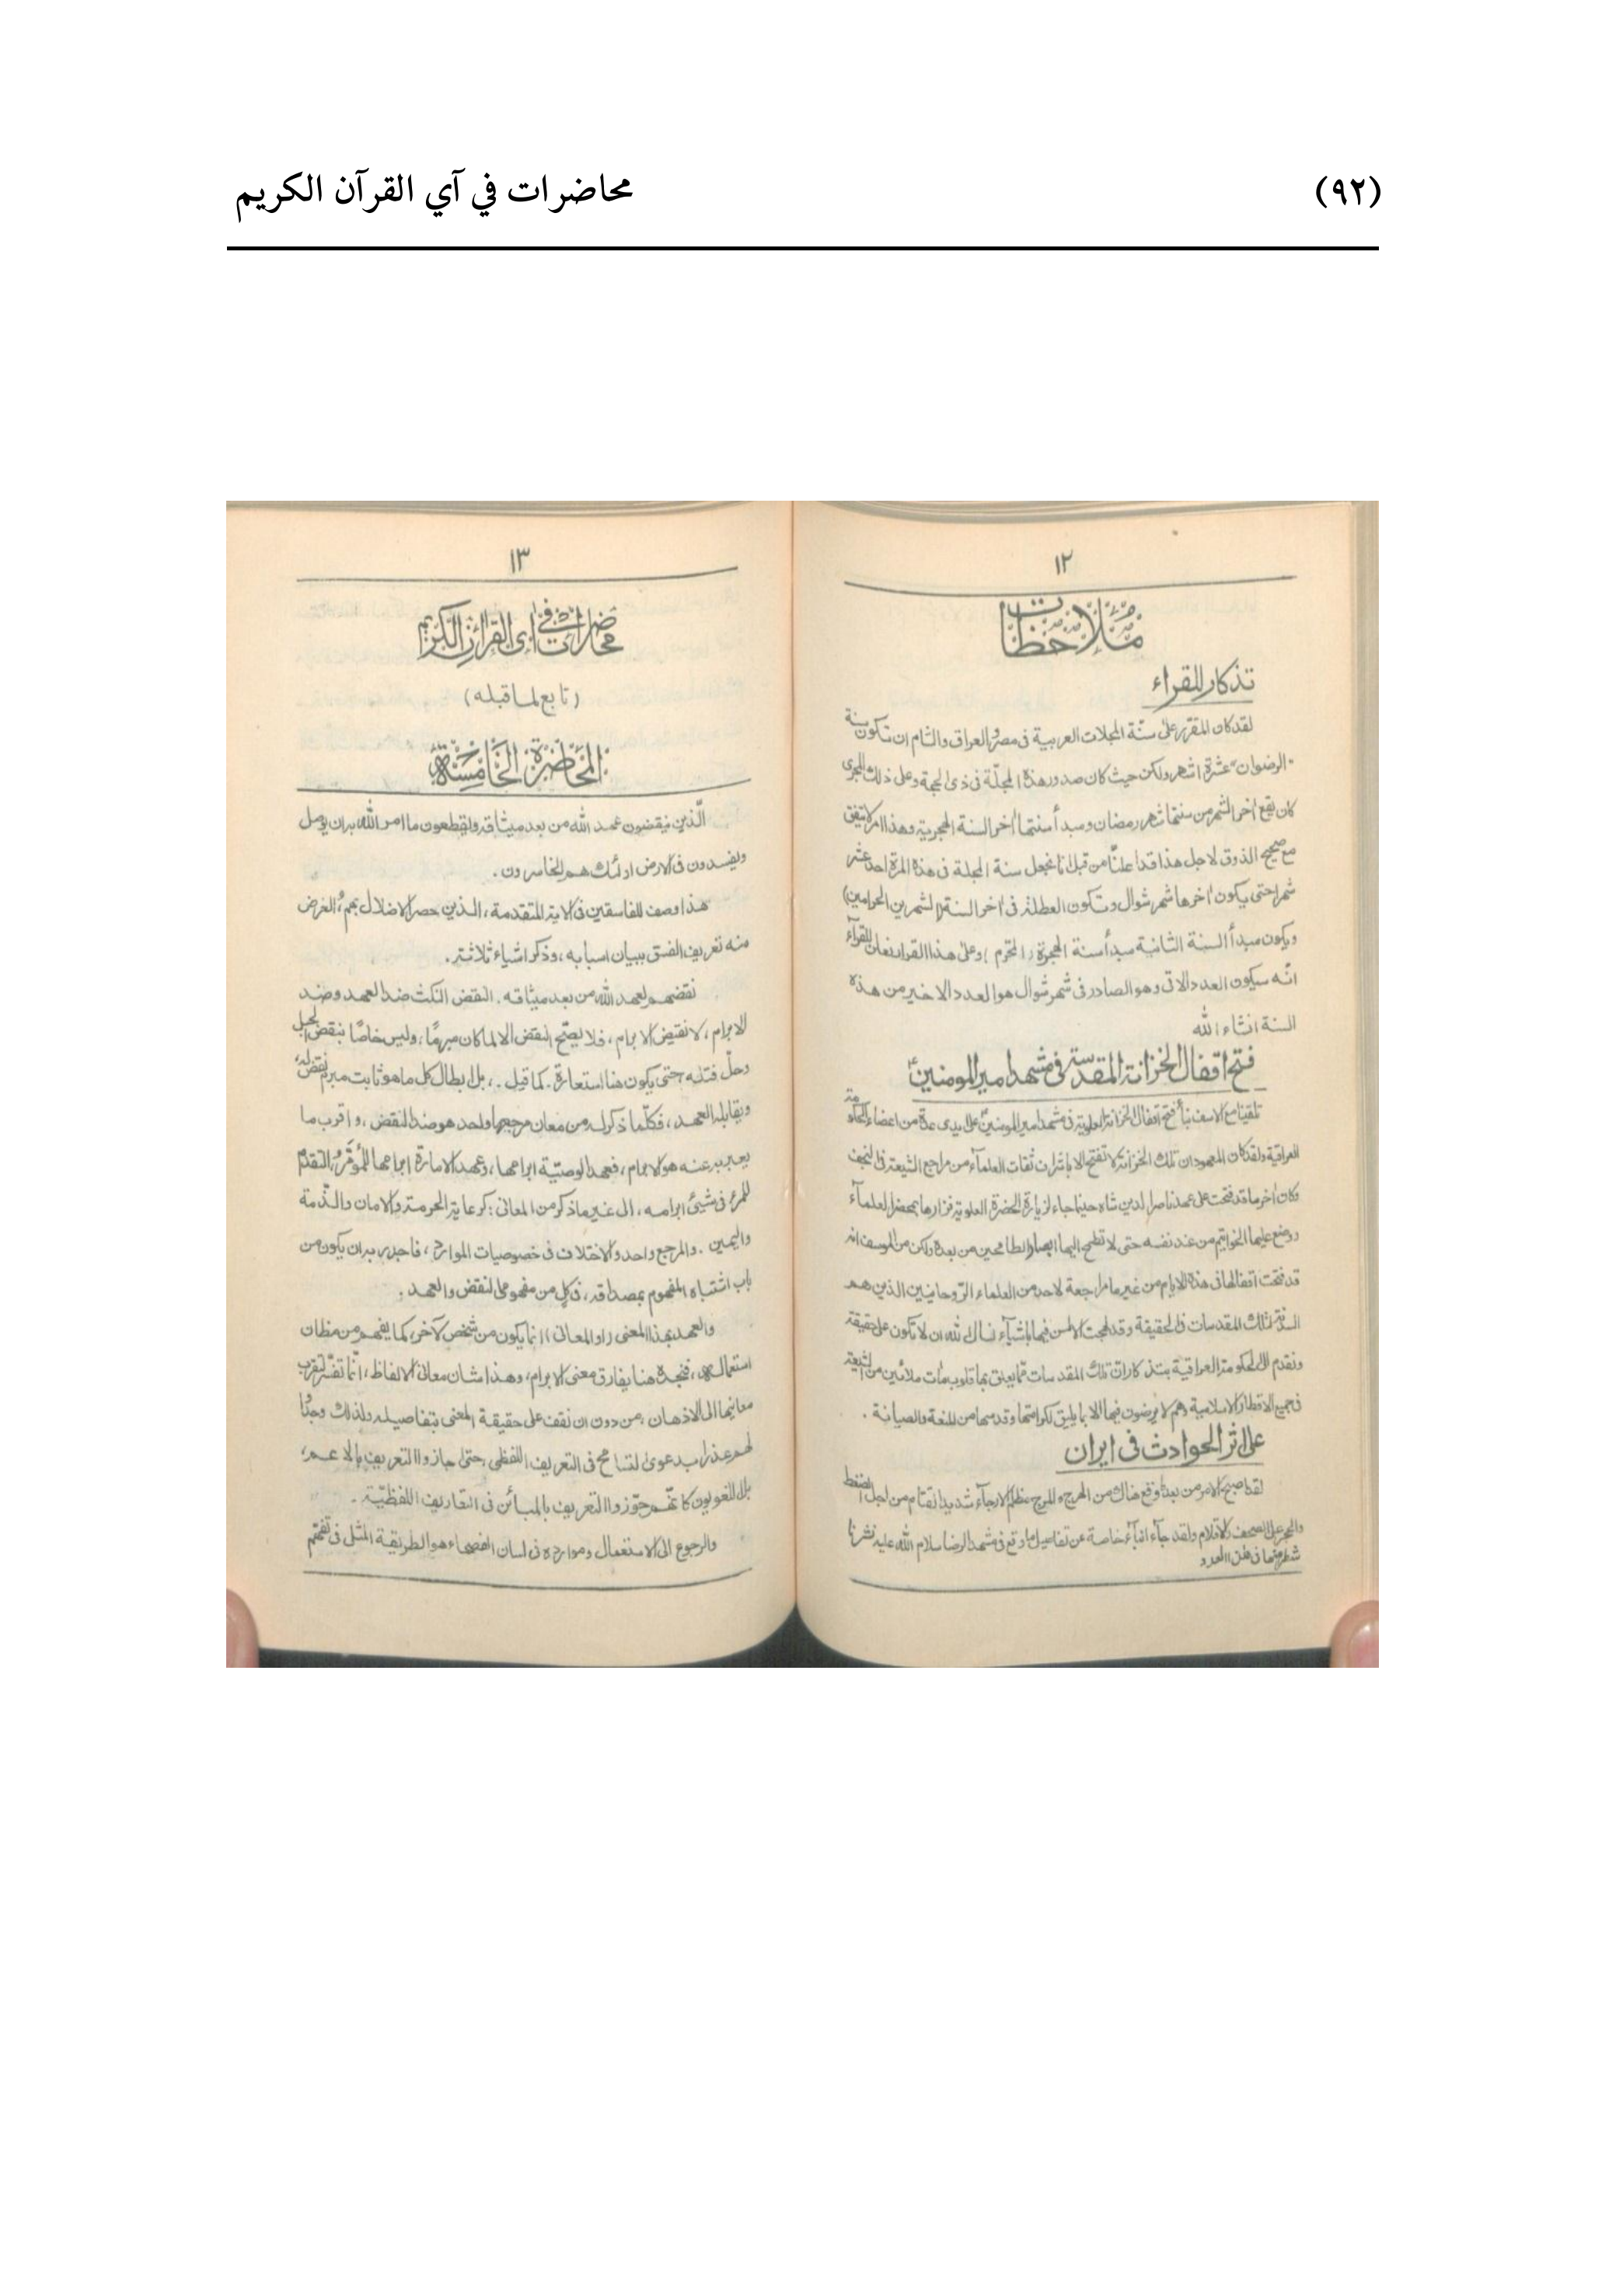 (٩٢)
محاضرات في آي القرآن الكريم
١٢
ملاحظات
تذكار للقراء
لقد كان المقرر على سنّة المجلات العربية فى مصر والعراق والشام ان تكون سنة
"الرضوان" عشرة اشهر ولكن حيث كان صدور هذه المجلّة فى ذى الحجة وعلى ذلك المجرى
كان يقع اخر الشهر من سنتها شهر رمضان ومبدأ سنتها اخر السنة الهجرية وهذا امر لا يتفق
مع صحيح الذوق لاجل هذا قد اعلنّا من قبل انا نجعل سنة المجلة فى هذه المرة احد عشر
شهراً حتى يكون اخرها شهر شوال وتكون العطلة فى اخر السنة (لشهرين الحرامين)
ويكون مبدأ السنة الثانية مبدأ سنة الهجرة (المحرم) وعلى هذا القرار نعلن للقرآء
انّه سيكون العدد الاتى وهو الصادر فى شهر شوال هو العدد الاخير من هذه
السنة انشاء الله
فتح اقفال الخزانة المقدسة فى مشهد امير المومنينؑ
تلقينا مع الاسف نبأ فتح اقفال الخزانة العلوية فى مشهد امير المومنينؑ على يدى عدة من اعضاء الحكومة
العراقية ولقد كان المعهود ان تلك الخزانة لا تفتح الا باشارات ثقات العلمآء من مراجع الشيعة فى النجف
وكان اخر ما قد فتحت على عهد ناصر الدين شاه حينما جاء لزيارة الحضرة العلوية فزارها بمحضر العلمآء
ووضع عليها الخواتيم من عند نفسه حتى لا تطمح اليها ابصار الطامحين من بعده ولكن من الموسف انه
قد فتحت اقفالها فى هذه الايام من غير ما مراجعة لاحد من العلماء الرّوحانيين الذين هم
السدنة لتلك المقدسات فى الحقيقة وقد لهجت الالسن فيها باشيآء نسال الله ان لا تكون على حقيقة
ونقدم الى الحكومة العراقية بتذكار انّ تلك المقدسات ممّا يعلق بها قلوب مأت ملائين من الشيعة
فى جميع الاقطار الاسلامية وهم لا يرضون فيها الا بما يليق لكرامتها وقدسها من المنعة والصيانة .
على اثر الحوادث فى ايران
لقد اصبح الامر من بعد ما وقع هناك من الهرج والمرج مظلم الارجآء شديد القتام من اجل الضغط
والحجر على الصحف والاقلام ولقد جآء انبآء خاصة عن تفاصيل ما وقع فى مشهد الرضا سلام الله عليه نشرنا
شطر منها فى هذا العدد
١٣
محاضرات فى آى القرآن الكريم
(تابع لما قبله)
المحاضرة الخامسة
الّذين ينقضون عهد الله من بعد ميثاقه ويقطعون ما امر الله به ان يوصل
ويفسدون فى الارض اولئك هم الخاسرون .
هذا وصف للفاسقين فى الاية المتقدمة، الذين حصر الاضلال بهم، الغرض
منه تعريف الفسق ببيان اسبابه، وذكر اشياء ثلاثة.
نقضهم لعهد الله من بعد ميثاقه . النقض النكث ضد العهد وضد
الابرام، لا نقيض الابرام، فلا يصّح النقض الا لما كان مبرمًا، وليس خاصًا بنقض الحبل
وحلّ فتله حتى يكون هنا استعارة . كما قيل .، بل ابطال كل ما هو ثابت مبرم نقض له،
ويقابله العهد، فكلّما ذكر له من معان مرجعها واحد هو ضد النقض، واقرب ما
يعبر به عنه هو الابرام، فعهد الوصيّة ابرامها، وعهد الامارة ابرامها للمؤمّر، والتقدّم
للمرء فى شيئ ابرامه، الى غير ما ذكر من المعانى : كرعاية الحرمة والامان والذّمة
واليمين . والمرجع واحد والاختلاف فى خصوصيات الموارد، فاجدر به ان يكون من
باب اشتباه المفهوم بمصداقه، فى كل من مفهومى النقض والعهد .
والعهد بهذا المعنى (او المعانى) انما يكون من شخص لآخر، كما يفهم من مظان
استعمالهم، فنجده هنا يفارق معنى الابرام، وهذا شان معانى الالفاظ، انّما تفسّر لتقرب
معانيها الى الاذهان، من دون ان نقف على حقيقة المعنى بتفاصيله ولذلك وجدوا
لهم عذرا بدعوى التسامح فى التعريف اللفظى حتى جازوا التعريف بالاعم،
بل اللغويون كانهّم جوّزوا التعريف بالمبائن فى التعاريف اللفظيّة .
والرجوع الى الاستعمال وموارده فى لسان الفصحاء هو الطريقة المثلى فى تفهّم